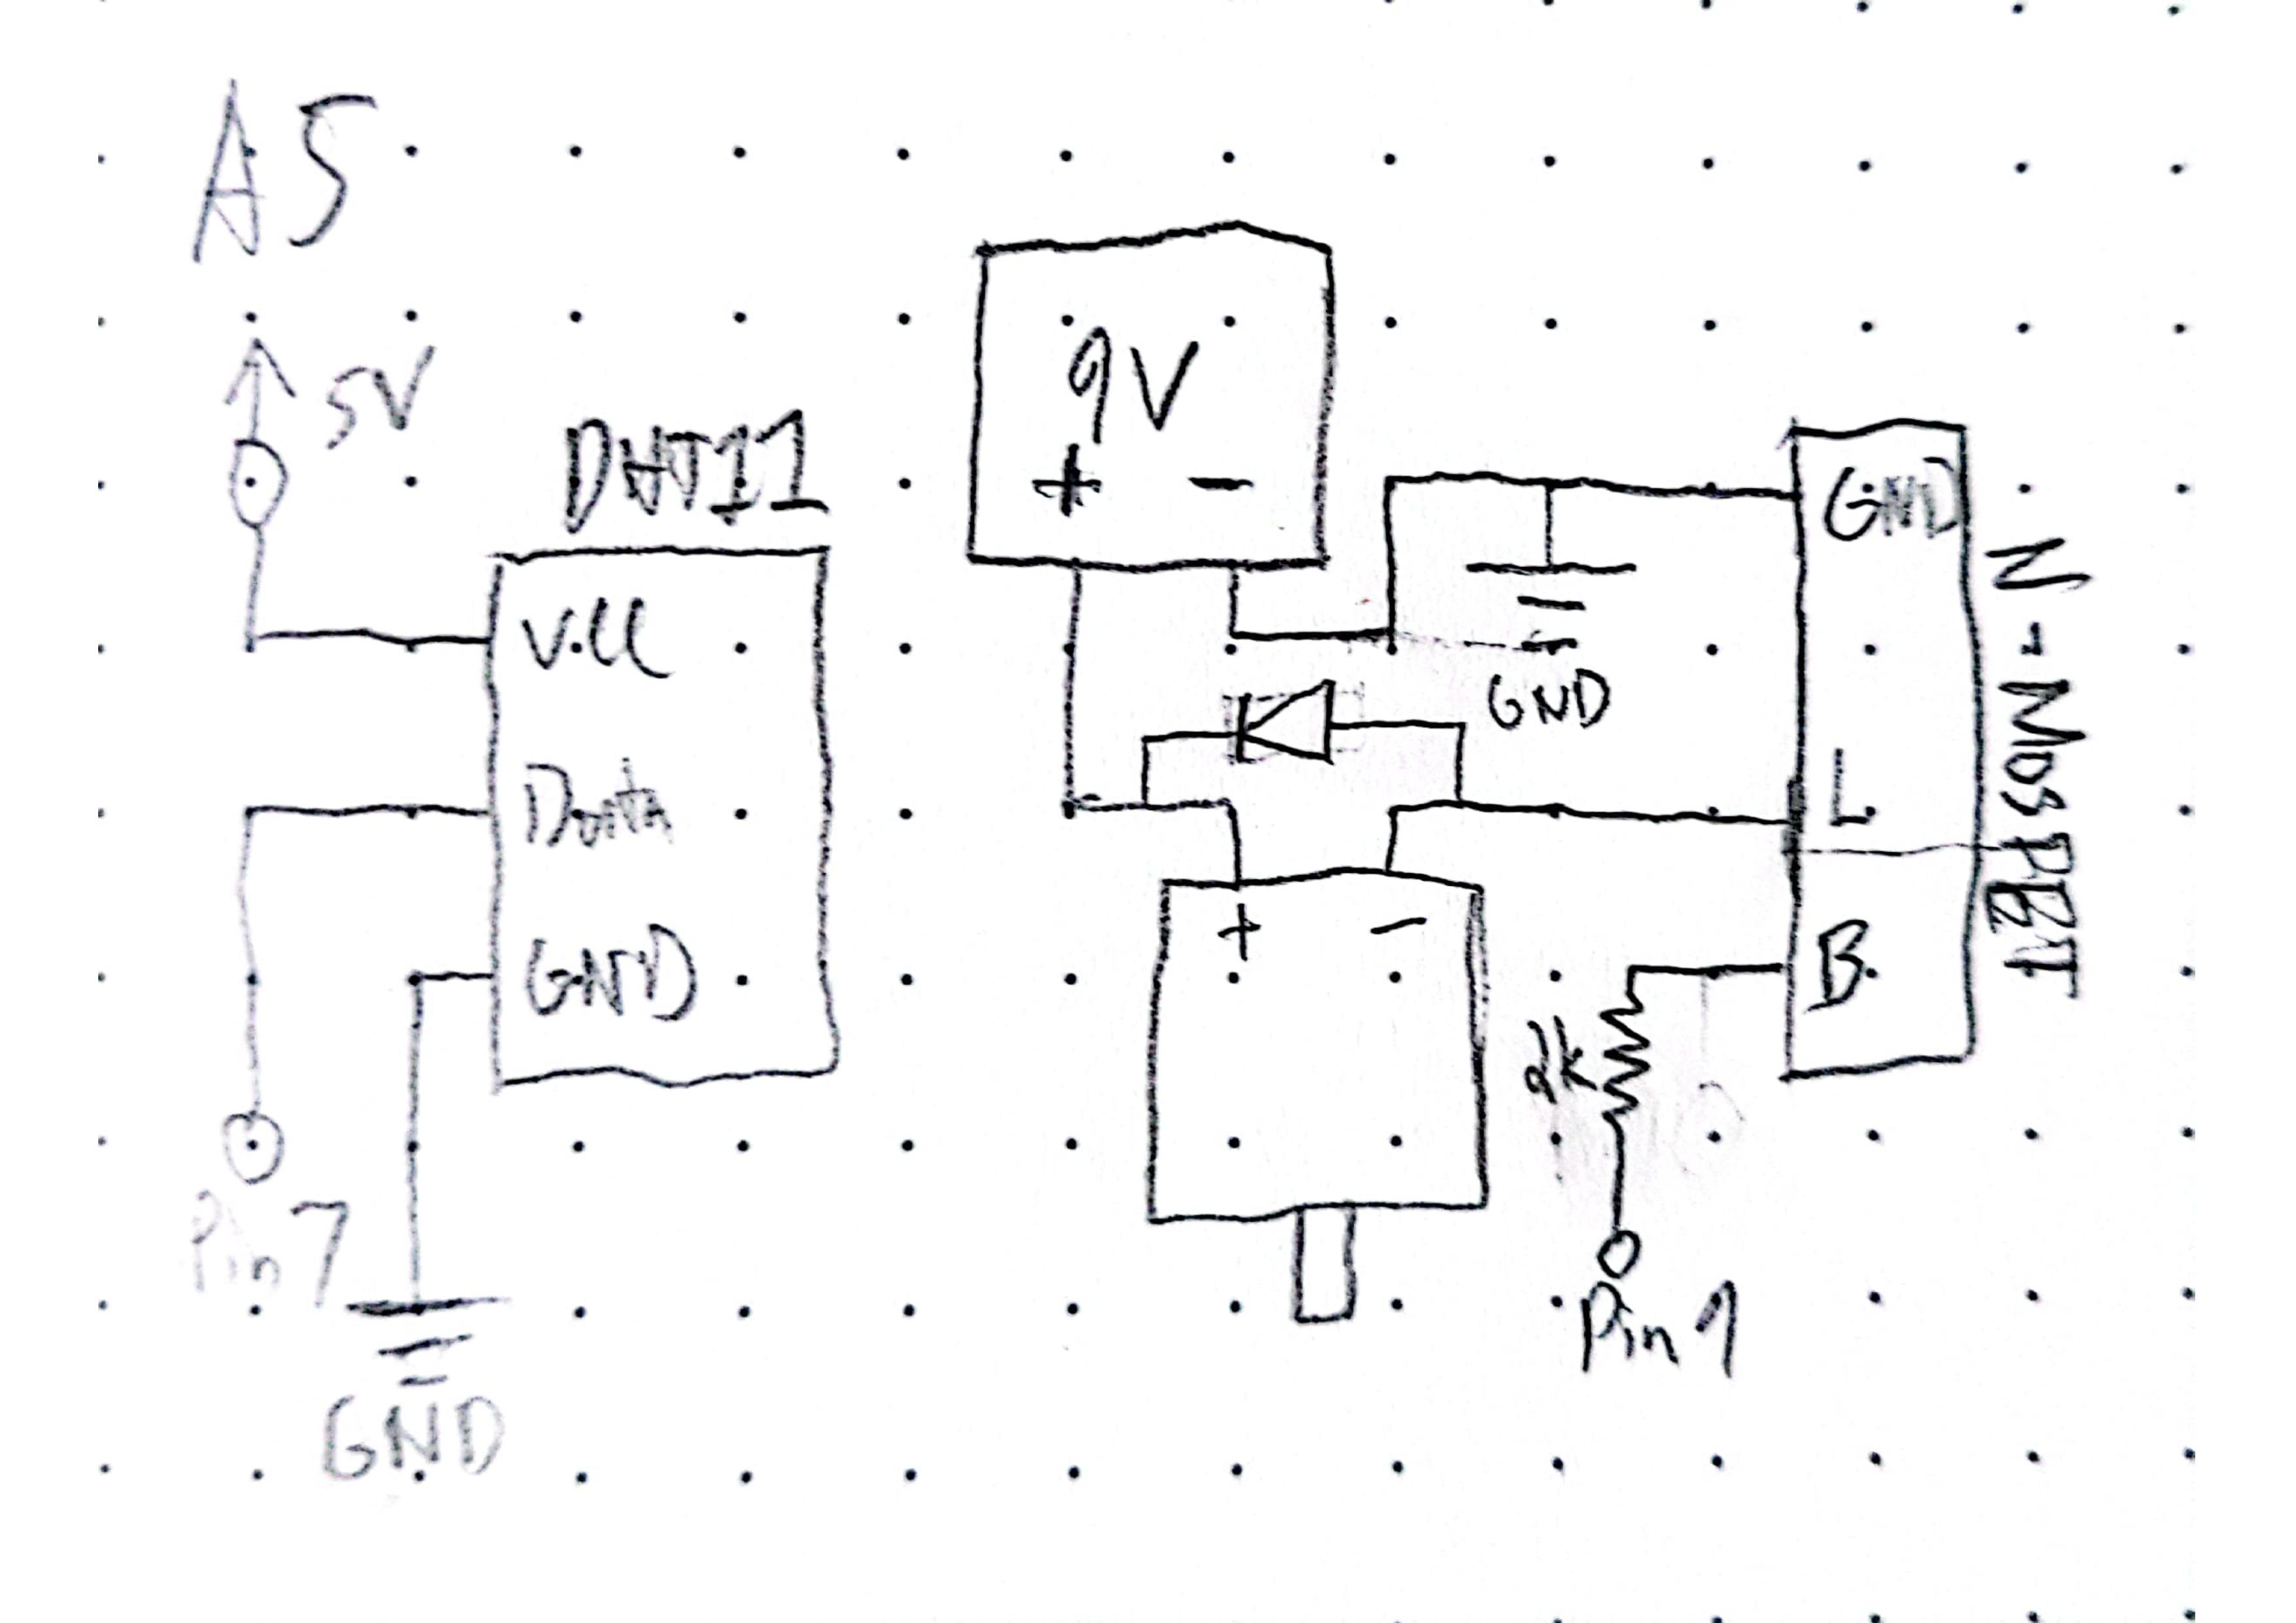 A5
5V
DHT11
VCC
Data
GND
Pin 7
GND
9V
+ -
GND
+ -
GND
L
B
N-MOSFET
Pin 9